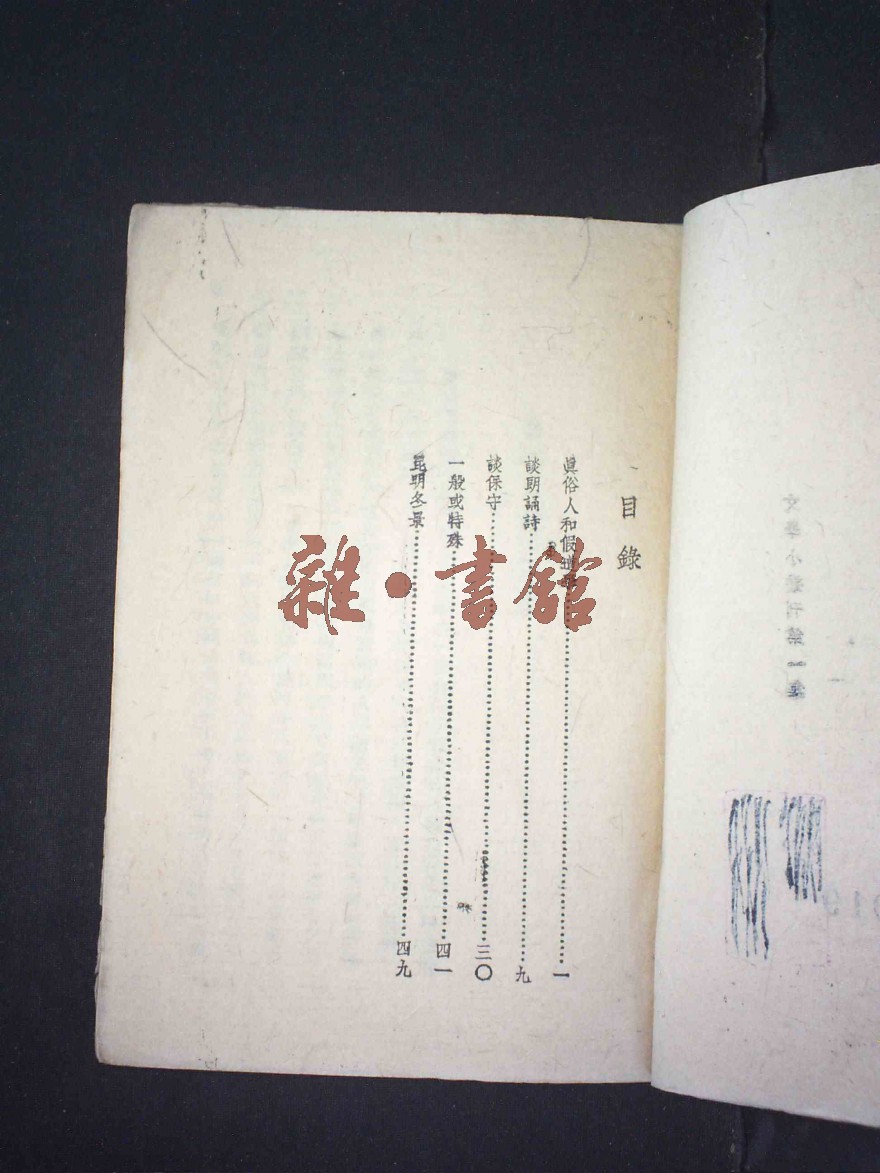 目錄
眞俗人和假道學……一
談朗誦詩……九
談保守……三〇
一般或特殊……四一
昆明冬景……四九
雜·書館
文學小叢刊第一集